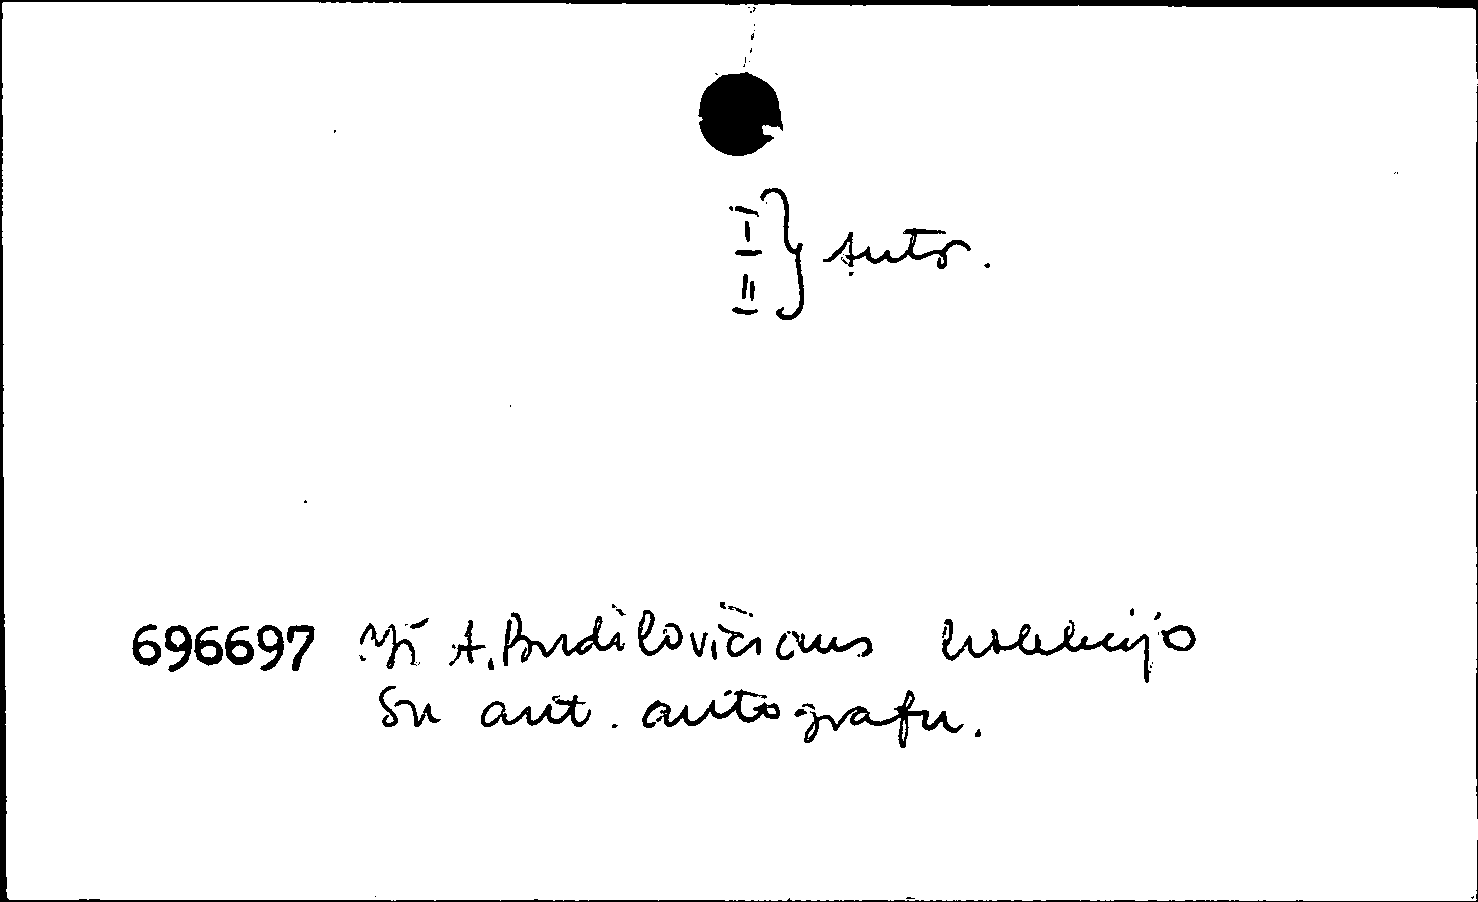 I
II } autor.
696697 Iš A. Budilovičiaus kolekcijo
Su aut. autografu.